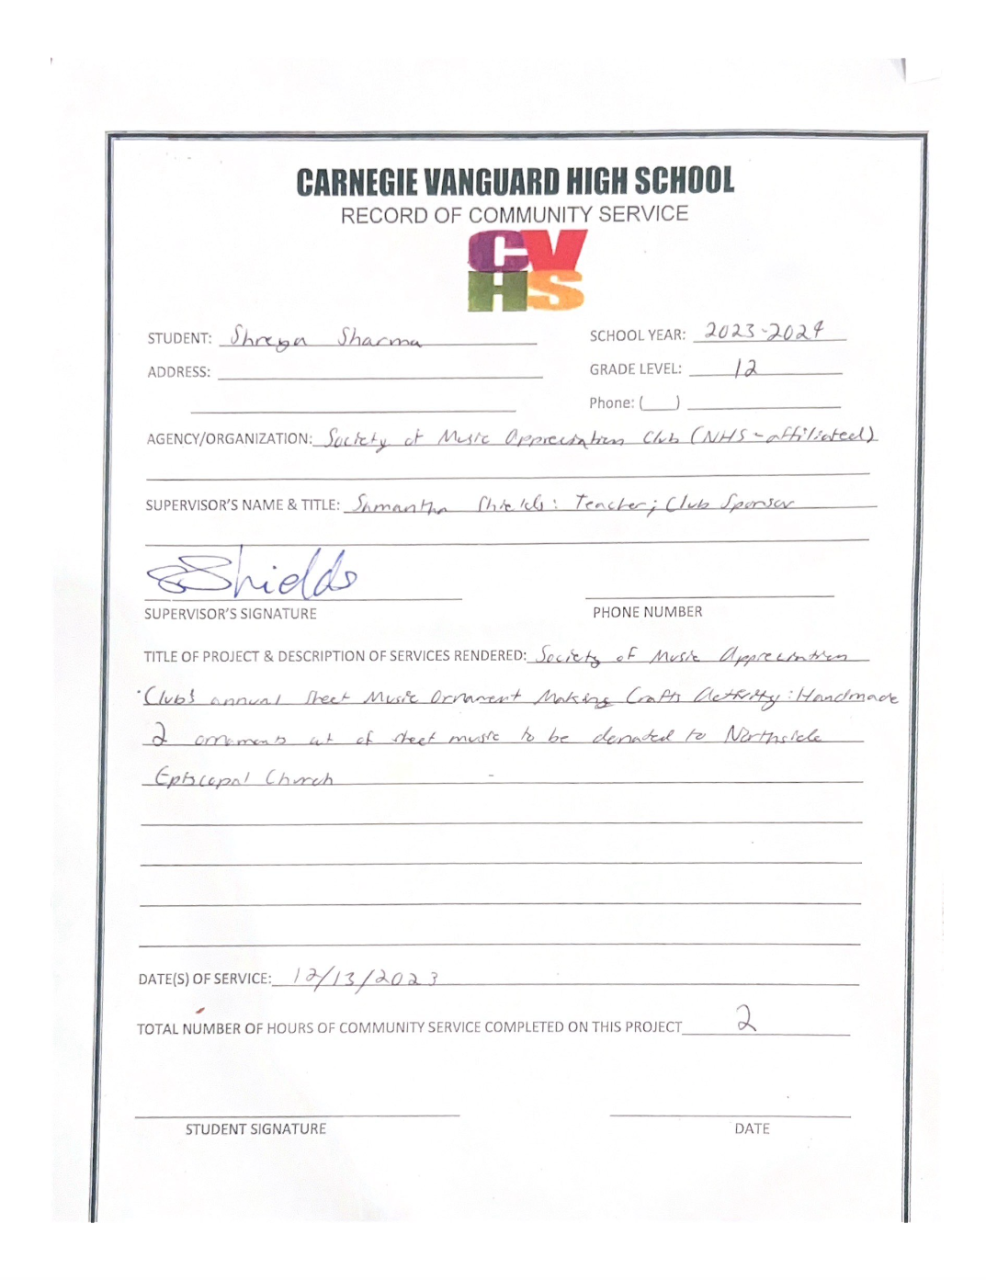 CARNEGIE VANGUARD HIGH SCHOOL
RECORD OF COMMUNITY SERVICE
CV
HS
STUDENT: Shreya Sharma
SCHOOL YEAR: 2023-2024
ADDRESS:
GRADE LEVEL: 12
Phone: ( )
AGENCY/ORGANIZATION: Society of Music Appreciation Club (NHS-affiliated)
SUPERVISOR'S NAME & TITLE: Samantha Shields: Teacher; Club Sponsor
SShields
SUPERVISOR'S SIGNATURE
PHONE NUMBER
TITLE OF PROJECT & DESCRIPTION OF SERVICES RENDERED: Society of Music Appreciation
Club's annual Sheet Music Ornament Making Crafts Activity: Handmade
2 ornaments out of sheet music to be donated to Northside
Episcopal Church
DATE(S) OF SERVICE: 12/13/2023
TOTAL NUMBER OF HOURS OF COMMUNITY SERVICE COMPLETED ON THIS PROJECT 2
STUDENT SIGNATURE
DATE